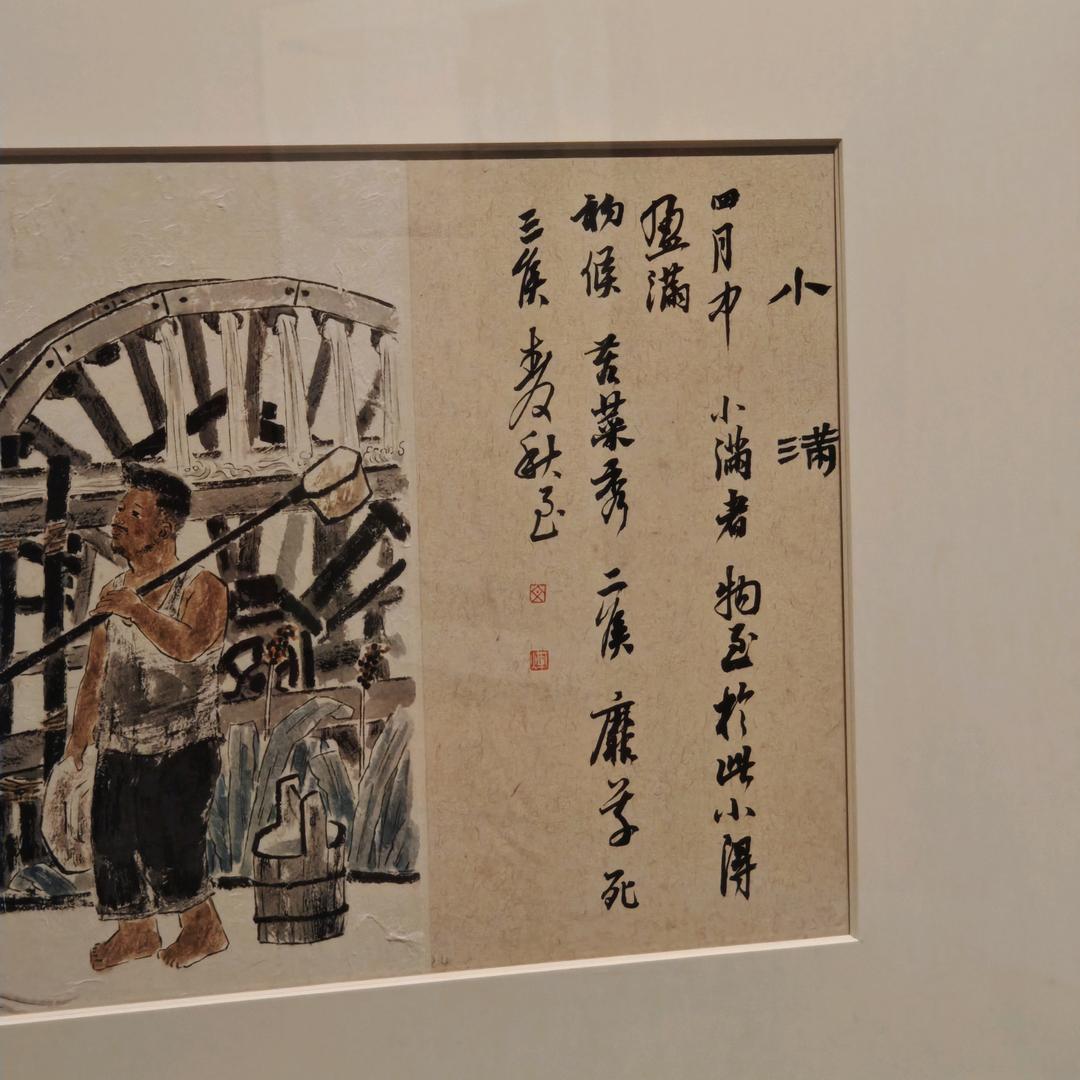 小满
四月中 小满者 物至於此小得
盈满
初候 苦菜秀 二候 靡草死
三候 麦秋至